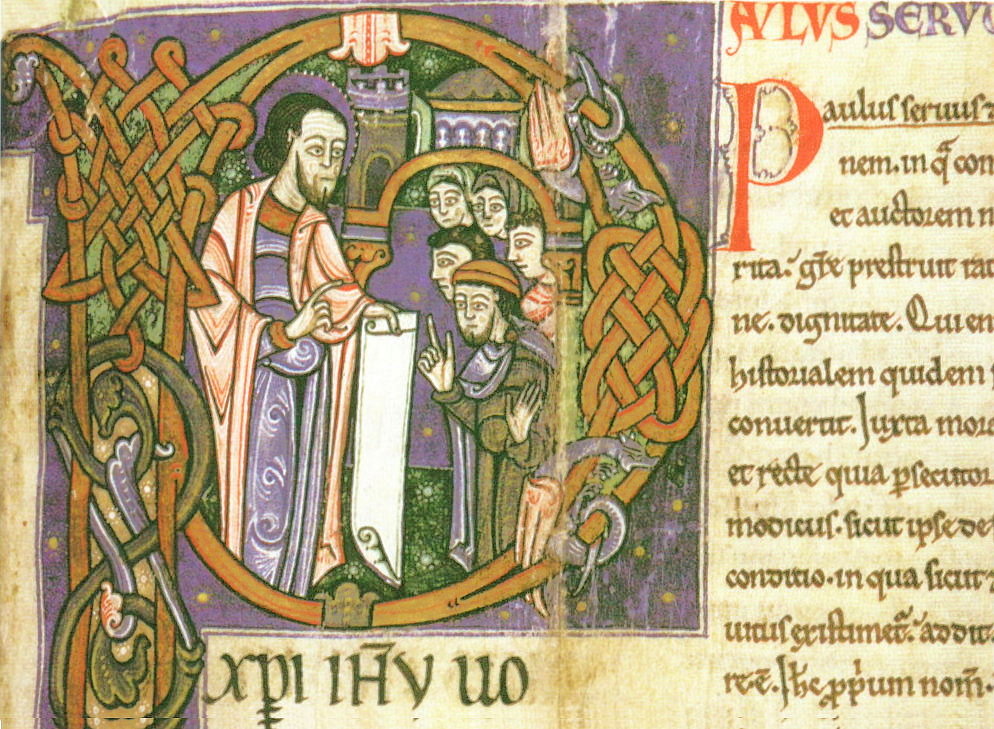 AULUS SERVU
Paulus seruus
nem. in q̄ con
et auctorem n
rita. gr̄e prestruit
ne. dignitate. Qui en
historialem quidem
conuertit. Juxta more
et recte quia p̱secutor
modicus. sicut ipse de
conditio. in qua sicut
uitus existimet̄. addit.
re. ē. Ih̄c pp̄rium nom̄.
xp̄i ih̄v uo